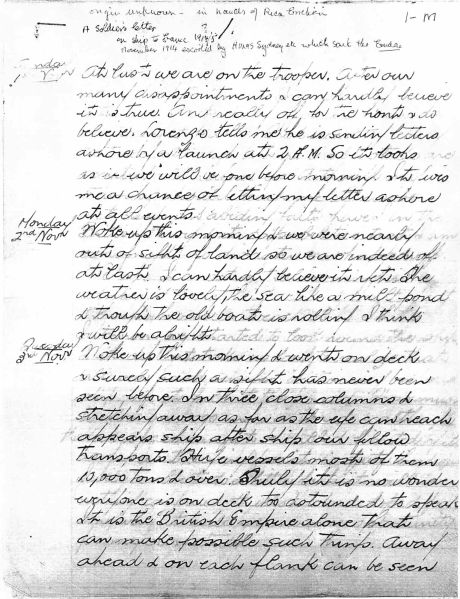 origin unknown - in hands of Rica Erickson
1-M
A Soldier's letter
on ship to France 1914/5?
November 1914 escorted by HMAS Sydney etc which sank the Emden
Sunday
1st Nov
At last we are on the trooper. After our
many disappointments I can hardly believe
it is true. Am really off to the front & do
believe. Lorenzo tells me he is sending letters
ashore by a launch at 2 A.M. So it looks
as if we will be gone before morning. It gives
me a chance of letting my letter ashore
at all events
Monday
2nd Nov
Woke up this morning & we were nearly
out of sight of land so we are indeed off
at last. I can hardly believe it yet. The
weather is lovely, the sea like a mill pond
& though the old boat is rolling I think
I will be alright
Tuesday
3rd Nov
Woke up this morning & went on deck
& surely such a sight has never been
seen before. In three close columns &
stretching away as far as the eye can reach
appears ship after ship our fellow
transports. Huge vessels most of them
10,000 tons & over. Truly it is no wonder
everyone is on deck too astounded to speak
It is the British Empire alone that
can make possible such things. Away
ahead & on each flank can be seen